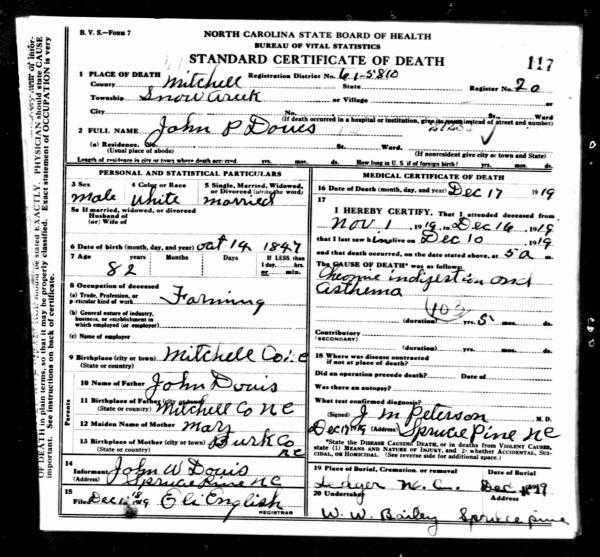 B. V. S.—Form 7
NORTH CAROLINA STATE BOARD OF HEALTH
BUREAU OF VITAL STATISTICS
STANDARD CERTIFICATE OF DEATH
117
1 PLACE OF DEATH
Registration District No. 61-5810
County Mitchell State Register No. 20
Township Snow Creek or Village
City No. St. Ward
(If death occurred in a hospital or institution, give its name instead of street and number)
2 FULL NAME John P Douis
(a) Residence. No. St. Ward.
(Usual place of abode) (If nonresident give city or town and State)
Length of residence in city or town where death occurred yrs. mos. ds. How long in U. S. if of foreign birth? yrs. mos. ds.
PERSONAL AND STATISTICAL PARTICULARS
3 Sex 4 Color or Race 5 Single, Married, Widowed, or Divorced (write the word)
male white married
5a If married, widowed, or divorced
Husband of
(or) Wife of
6 Date of birth (month, day, and year) Oct 14 1847
7 Age Years Months Days If LESS than
82 1 day, hrs.
or min.
8 Occupation of deceased
(a) Trade, Profession, or
particular kind of work Farming
(b) General nature of industry,
business, or establishment in
which employed (or employer)
(c) Name of employer
9 Birthplace (city or town) Mitchell Co
(State or country)
Parents
10 Name of Father John Douis
11 Birthplace of Father (city or town)
(State or country) Mitchell Co NC
12 Maiden Name of Mother Mary
13 Birthplace of Mother (city or town) Burk Co
(State or country) N C
14
Informant John W Douis
(Address) Spruce Pine N C
15
Filed Dec Eli English
REGISTRAR
MEDICAL CERTIFICATE OF DEATH
16 Date of Death (month, day, and year) Dec 17 1919
17
I HEREBY CERTIFY, That I attended deceased from
Nov 1, 1919, to Dec 16, 1919
that I last saw him alive on Dec 10, 1919
and that death occurred, on the date stated above, at 5 a m.
The CAUSE OF DEATH* was as follows:
Chronic indigestion and
asthema
(duration) yrs. 5 mos. ds.
Contributory
(SECONDARY)
(duration) yrs. mos. ds.
18 Where was disease contracted
if not at place of death?
Did an operation precede death? Date of
Was there an autopsy?
What test confirmed diagnosis?
(Signed) J M Peterson M. D.
(Address) Spruce Pine N C
*State the DISEASE CAUSING DEATH, or in deaths from VIOLENT CAUSES,
state (1) MEANS AND NATURE OF INJURY, and 2 whether ACCIDENTAL, SUI-
CIDAL, or HOMICIDAL. (See reverse side for additional space.)
19 Place of Burial, Cremation, or removal Date of Burial
Ledger N. C. Dec
20 Undertaker
W. W. Bailey Spruce pine